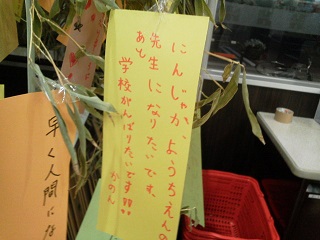 にんじゃか、ようちえんの
先生になりたいです。
あと
学校がんばりたいです!!!
かのん
早く人間にな